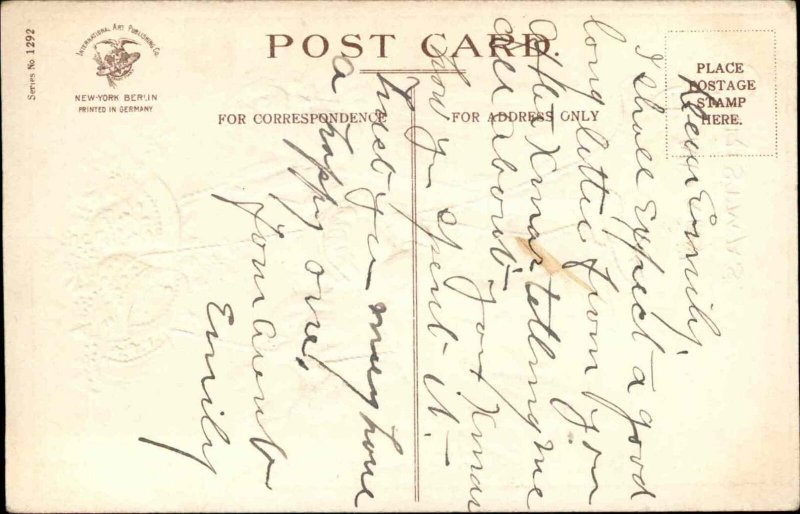 Series No 1292
INTERNATIONAL ART PUBLISHING CO.
NEW-YORK BERLIN
PRINTED IN GERMANY
POST CARD.
FOR CORRESPONDENCE
FOR ADDRESS ONLY
PLACE
POSTAGE
STAMP
HERE.
Dear Emily,
I shall expect a good
long letter from you
after Xmas telling me
all about – your Xmas
how you spent it –
Trust you may have
a happy one.
Your Aunt
Emily